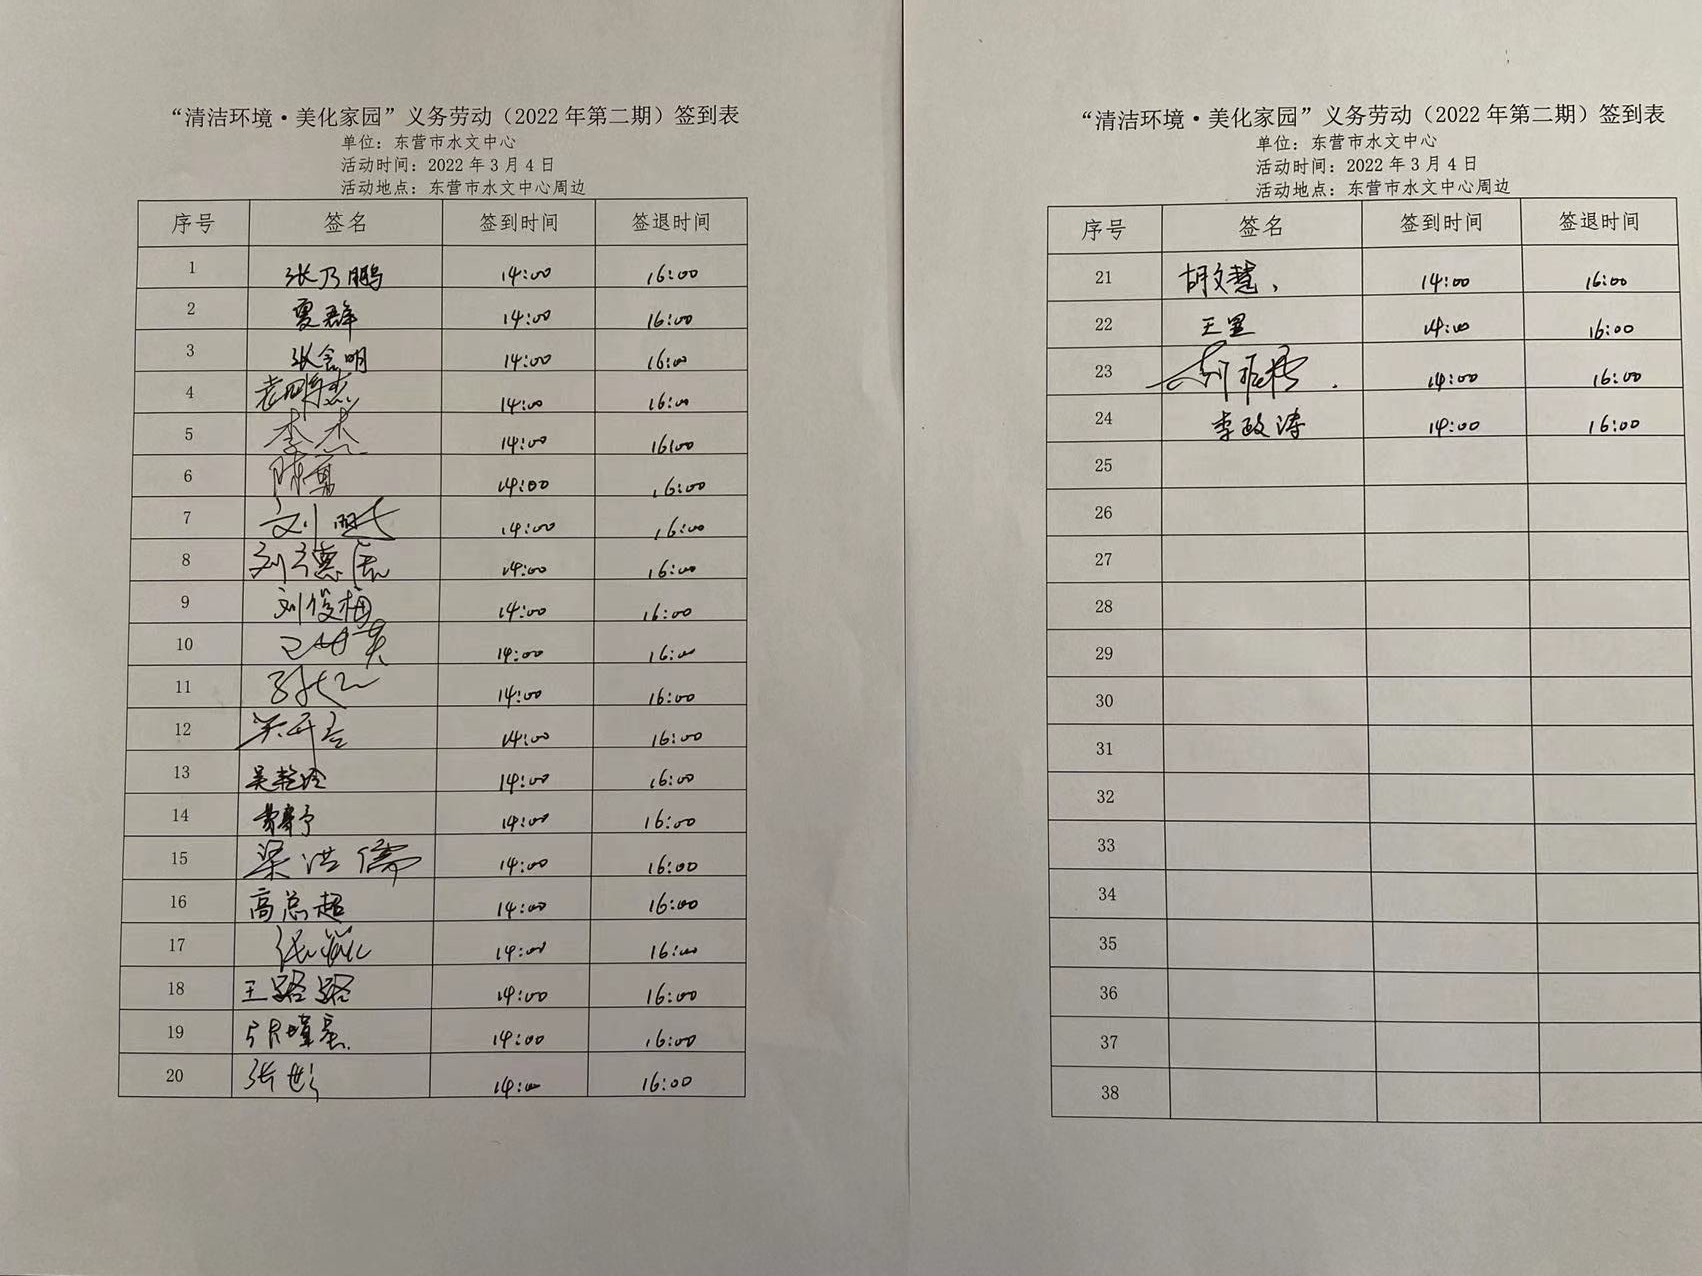 “清洁环境·美化家园”义务劳动（2022年第二期）签到表
单位：东营市水文中心
活动时间：2022年3月4日
活动地点：东营市水文中心周边
序号 签名 签到时间 签退时间
1 张乃鹏 14:00 16:00
2 夏群 14:00 16:00
3 张念明 14:00 16:00
4 14:00 16:00
5 李杰 14:00 16:00
6 陈勇 14:00 16:00
7 刘 14:00 16:00
8 刘德 14:00 16:00
9 刘俊梅 14:00 16:00
10 14:00 16:00
11 14:00 16:00
12 14:00 16:00
13 吴乾玲 14:00 16:00
14 14:00 16:00
15 梁洪儒 14:00 16:00
16 高总超 14:00 16:00
17 14:00 16:00
18 王路路 14:00 16:00
19 14:00 16:00
20 张彬 14:00 16:00
“清洁环境·美化家园”义务劳动（2022年第二期）签到表
单位：东营市水文中心
活动时间：2022年3月4日
活动地点：东营市水文中心周边
序号 签名 签到时间 签退时间
21 胡文慧 14:00 16:00
22 王罡 14:00 16:00
23 14:00 16:00
24 李政涛 14:00 16:00
25
26
27
28
29
30
31
32
33
34
35
36
37
38